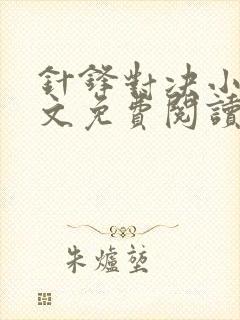 針鋒對決小
文免費閱讀
朱爐塹